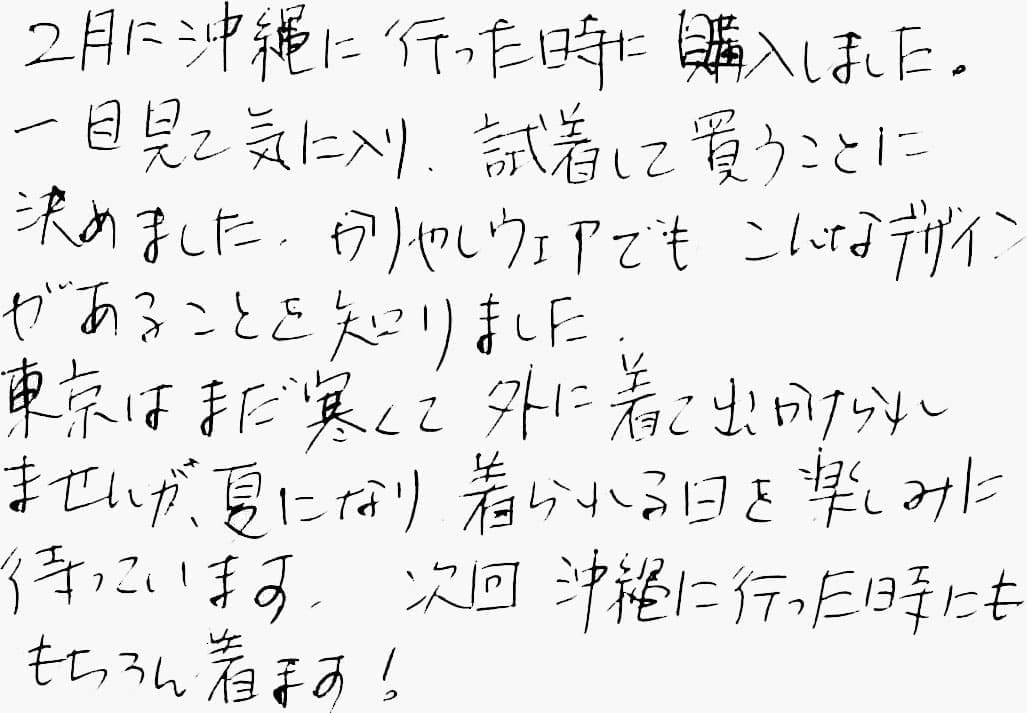 2月に沖縄に行った時に購入しました。
一目見て気に入り、試着して買うことに
決めました。かりゆしウェアでもこんなデザイン
があることを知りました。
東京はまだ寒くて外に着て出かけられ
ませんが、夏になり着られる日を楽しみに
待っています。次回沖縄に行った時にも
もちろん着ます!